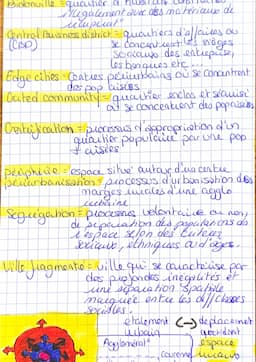 Bidonville = quartier à habitats construits
illégalement avec des matériaux de
récupérat°
Central Business district = quartiers d'affaires où
(CBD) se concentrent les sièges
sociaux des entreprise,
les banques etc...
Edge cities = Centres périurbains où se concentrent
des pop aisées
Gated community = quartier enclos et sécurisé
où se concentrent des pop aisées
Gentrification = processus d'appropriation d'un
quartier populaire par une pop
+ aisées
périphérie = espace situé autour d'un centre
périurbanisation = processus d'urbanisation des
marges rurales d'une agglo
urbaine
Ségrégation = processus volontaire ou non,
de séparation des populations ds
l'espace selon des critères
sociaux, ethniques ou d'âges.
Ville fragmentée = ville qui se caractérise par
des profondes inégalités et
une séparation spatiale
marquée entre les diff classes
sociales.
étalement déplacement
urbain
Agglomérat°
espace